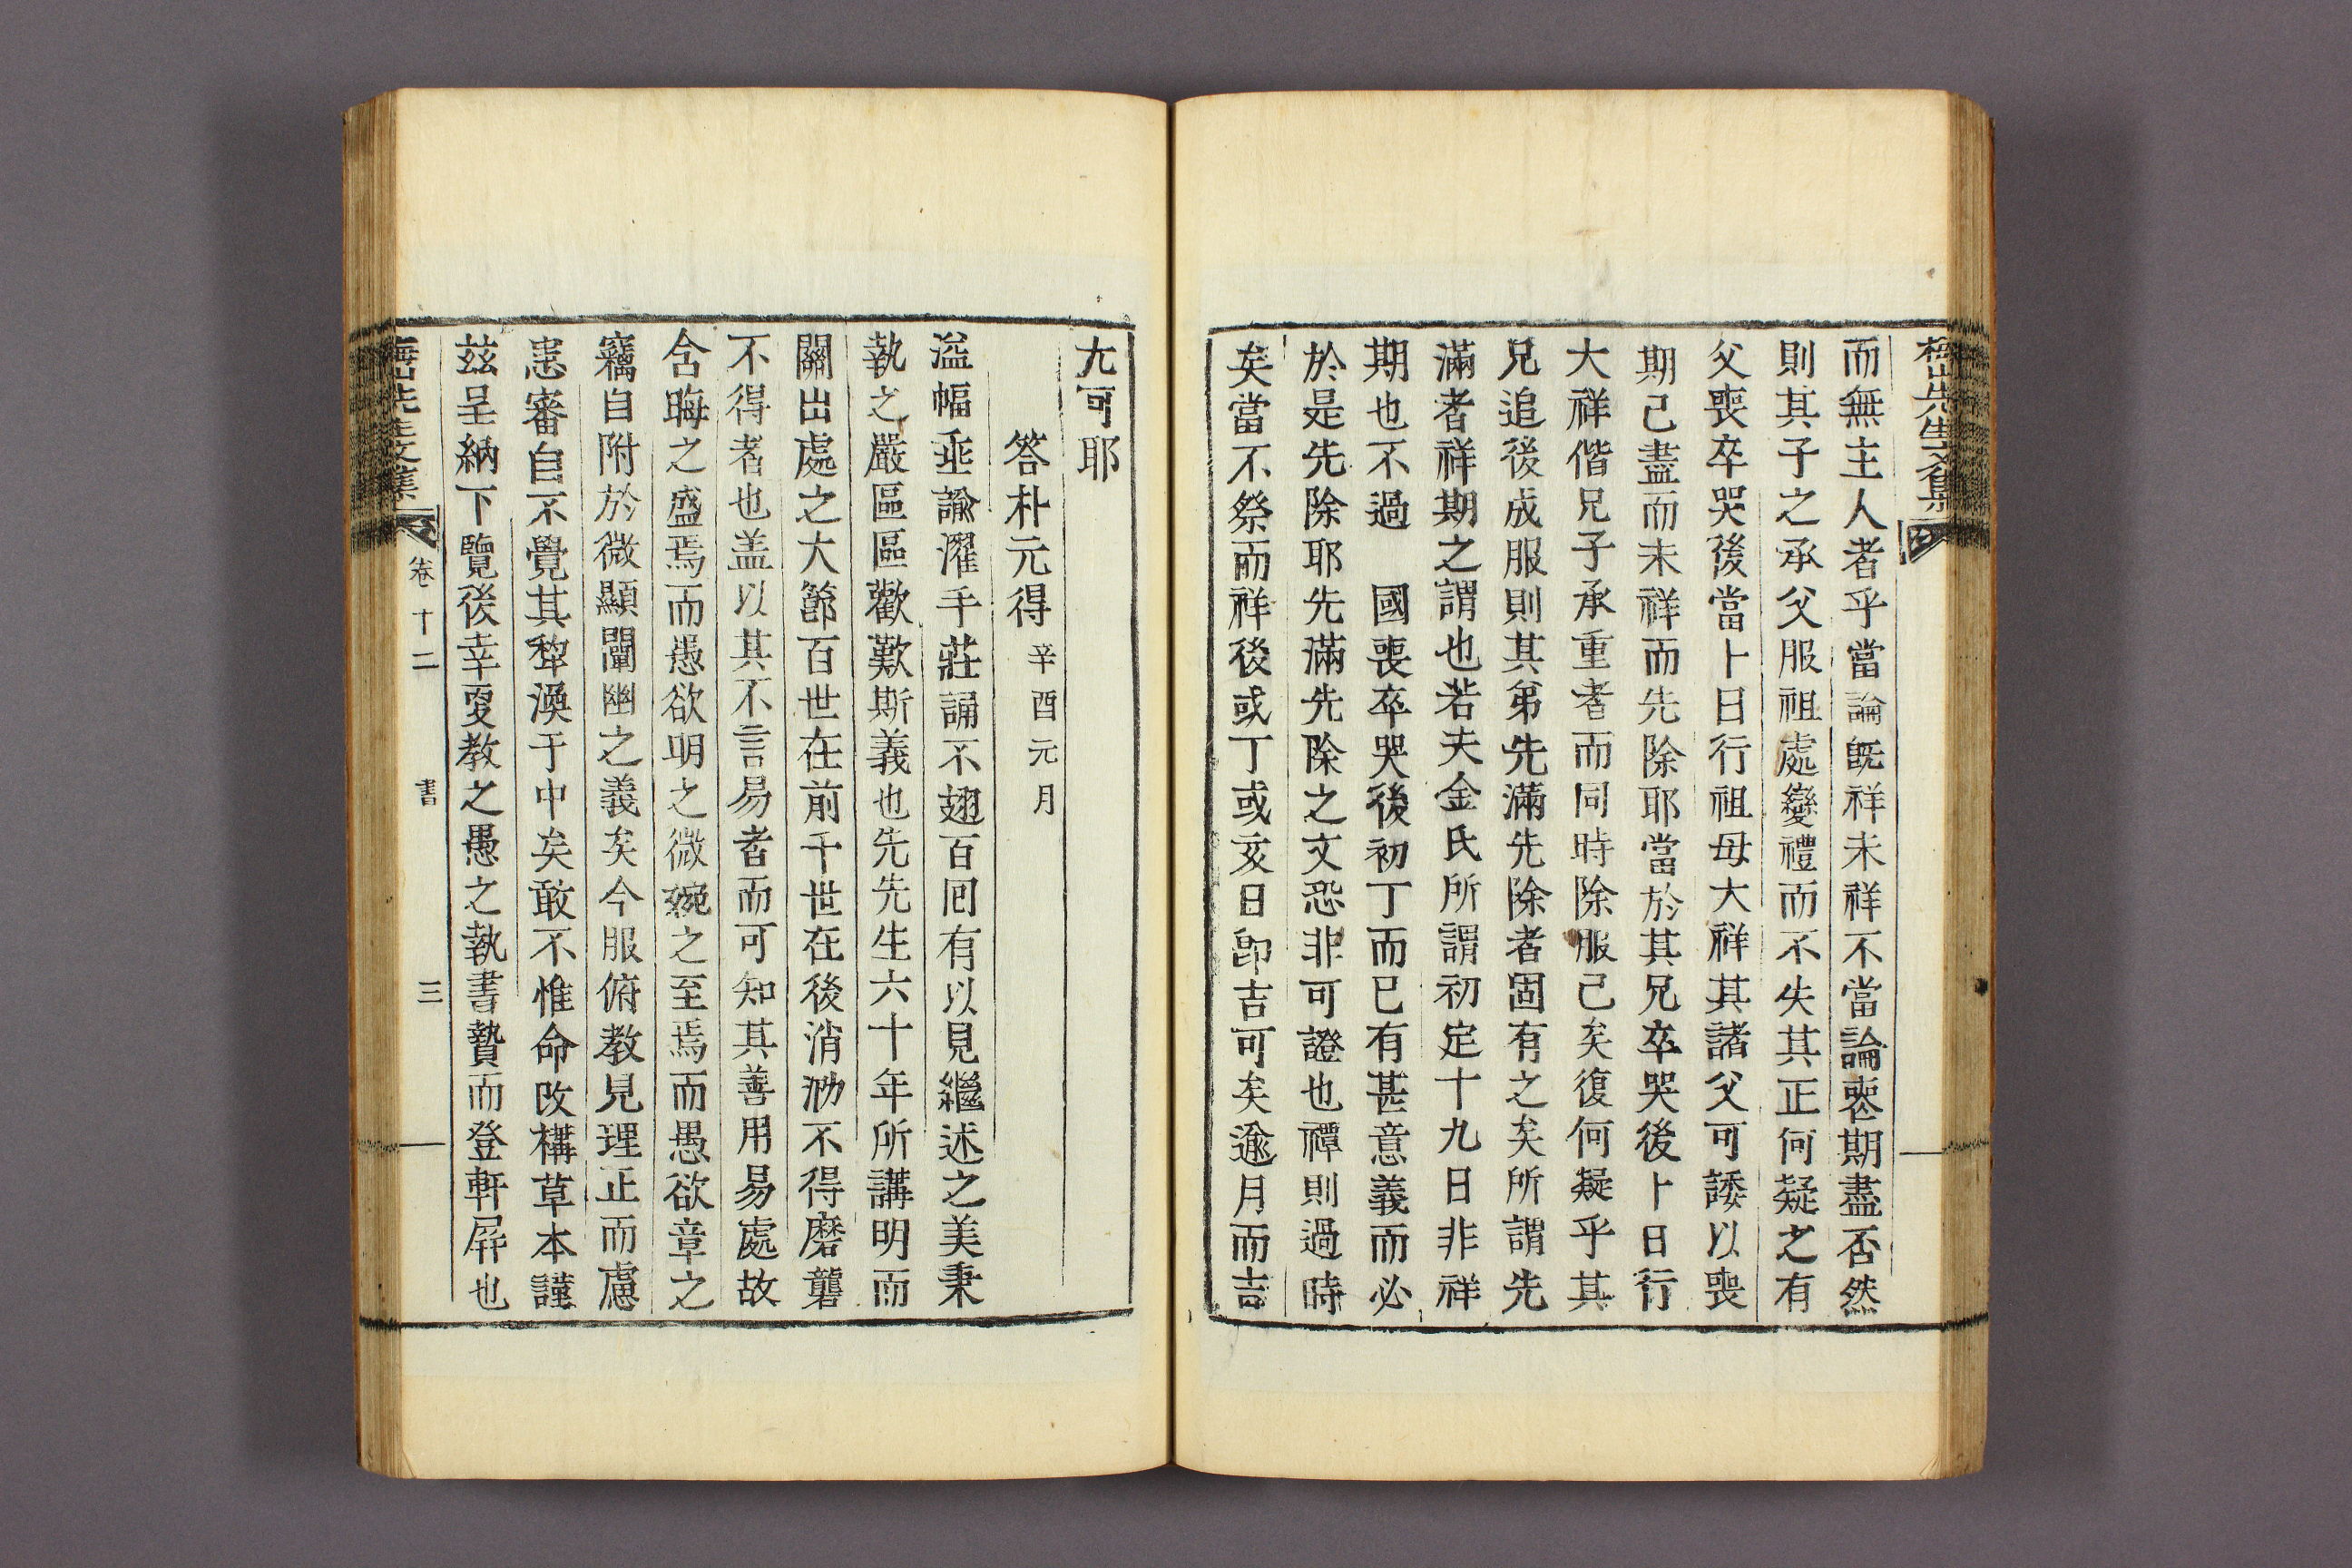 梅山先生文集
而無主人者乎當論旣祥未祥不當論喪期盡否然
則其子之承父服祖處變禮而不失其正何疑之有
父喪卒哭後當卜日行祖母大祥其諸父可諉以喪
期已盡而未祥而先除耶當於其兄卒哭後卜日行
大祥偕兄子承重者而同時除服已矣復何疑乎其
兄追後成服則其弟先滿先除者固有之矣所謂先
滿者祥期之謂也若夫金氏所謂初定十九日非祥
期也不過 國喪卒哭後初丁而已有甚意義而必
於是先除耶先滿先除之文恐非可證也禫則過時
矣當不祭而祥後或丁或亥日卽吉可矣逾月而吉
尤可耶
答朴元得 辛酉元月
溢幅垂諭濯手莊誦不翅百回有以見繼述之美秉
執之嚴區區歡歎斯義也先先生六十年所講明而
關出處之大節百世在前千世在後消泐不得磨礱
不得者也盖以其不言易者而可知其善用易處故
含晦之盛焉而愚欲明之微婉之至焉而愚欲章之
竊自附於微顯闡幽之義矣今服俯教見理正而慮
患審自不覺其犂渙于中矣敢不惟命改構草本謹
玆呈納下覽後幸更教之愚之執書贄而登軒屛也
梅山先生文集
卷十二
書
三